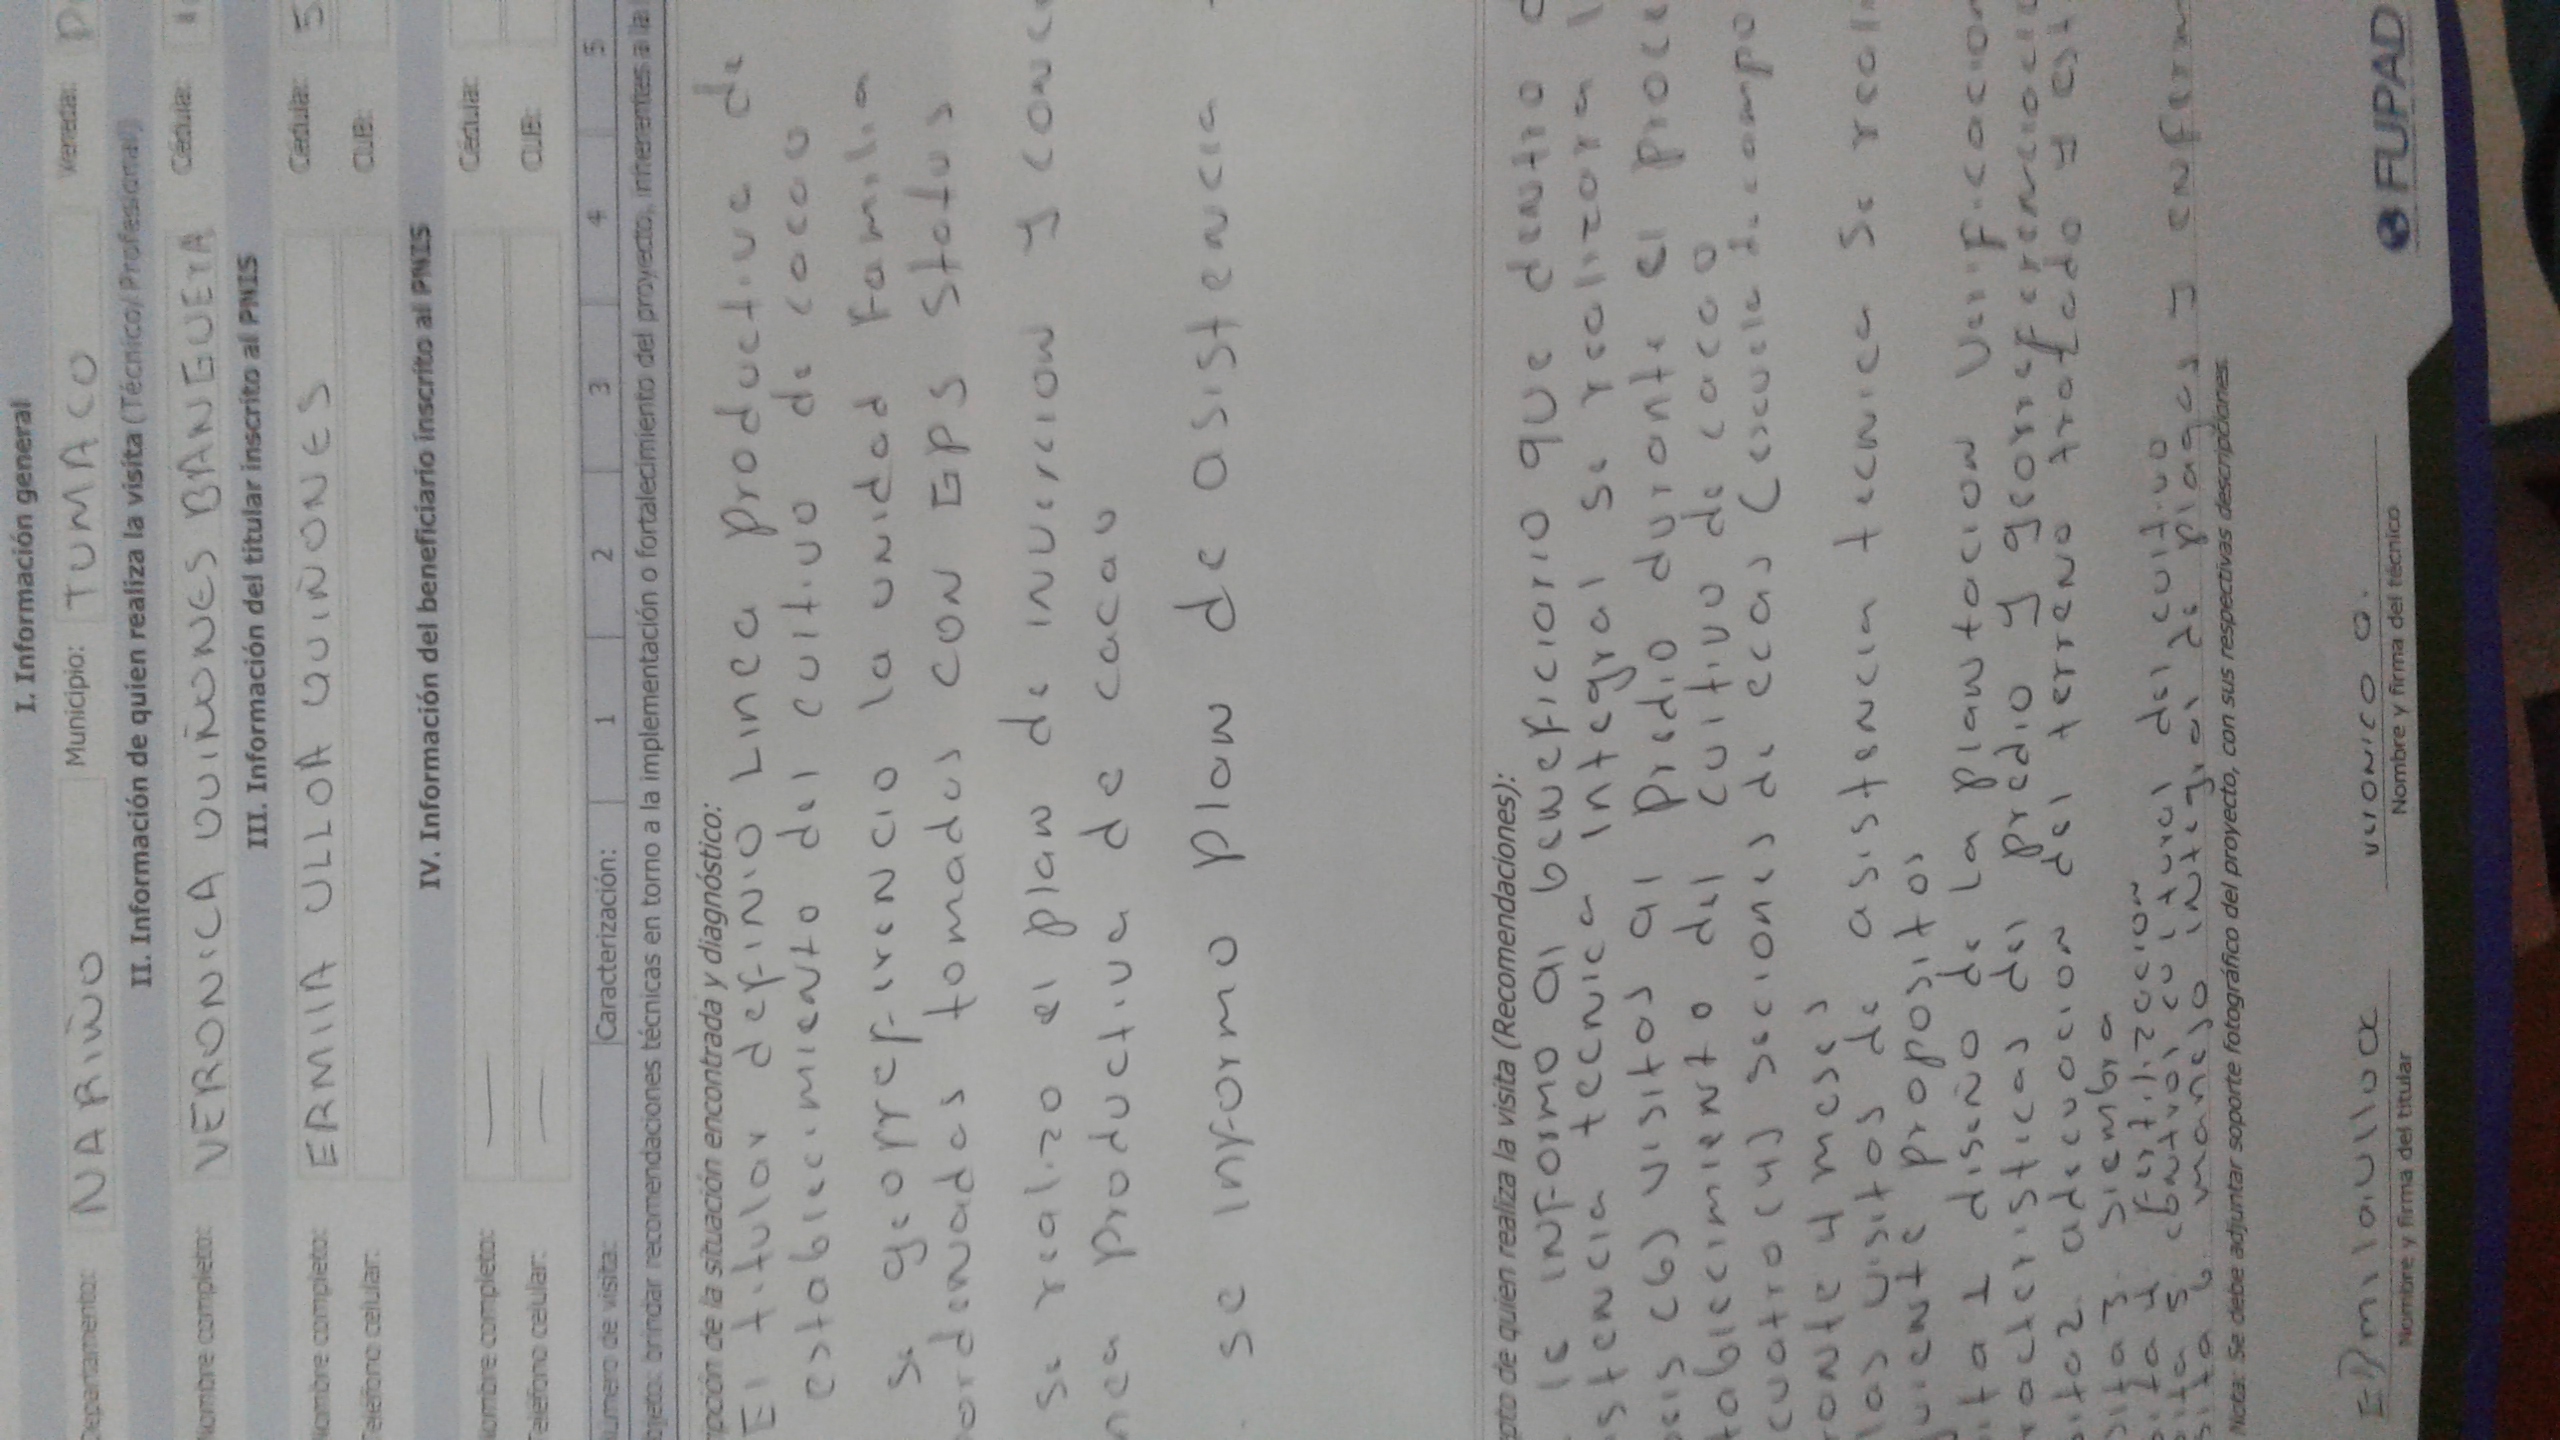 I. Información general
Departamento: NARIÑO Municipio: TUMACO Vereda:
II. Información de quien realiza la visita (Técnico/ Profesional)
Nombre completo: VERONICA QUIÑONES BANGUERA Cédula:
III. Información del titular inscrito al PNIS
Nombre completo: ERMILA ULLOA QUIÑONES Cédula: 5
Teléfono celular: CUB:
IV. Información del beneficiario inscrito al PNIS
Nombre completo: — Cédula:
Teléfono celular: — CUB:
Número de visita: Caracterización: 1 2 3 4 5
bjeto: brindar recomendaciones técnicas en torno a la implementación o fortalecimiento del proyecto, inherentes a la
ripción de la situación encontrada y diagnóstico:
El titular definio Linea productive de
establecimiento del cultivo de cacao
se georrefirencio la unidad familia
ordenadas tomadas con GPS status
se realizo el plan de invercion y conc
nea productiva de cacao
. se informo plan de asistencia
pto de quien realiza la visita (Recomendaciones):
le informo al beneficiario que dentro d
istencia tecnica integral se realizara l
seis (6) visitas al predio durante el proce
tablecimiento del cultivo de cacao
cuatro (4) seciones de ecas (escuela de campo
ante 4 meses
las visitas de asistencia tecnica se reali
guiente propositos
sita 1 diseño de la plantacion verificacion
racteristicas del predio y georreferenciacio
sita 2. adecuacion del terreno trazado y est
sita 3. siembra
sita 4 fertilizacion
sita 5. control cultural del cultivo
sita 6. manejo integral de plagas y enferm
Nota: Se debe adjuntar soporte fotográfico del proyecto, con sus respectivas descripciones.
Nombre y firma del titular
veronica Q.
Nombre y firma del técnico
FUPAD